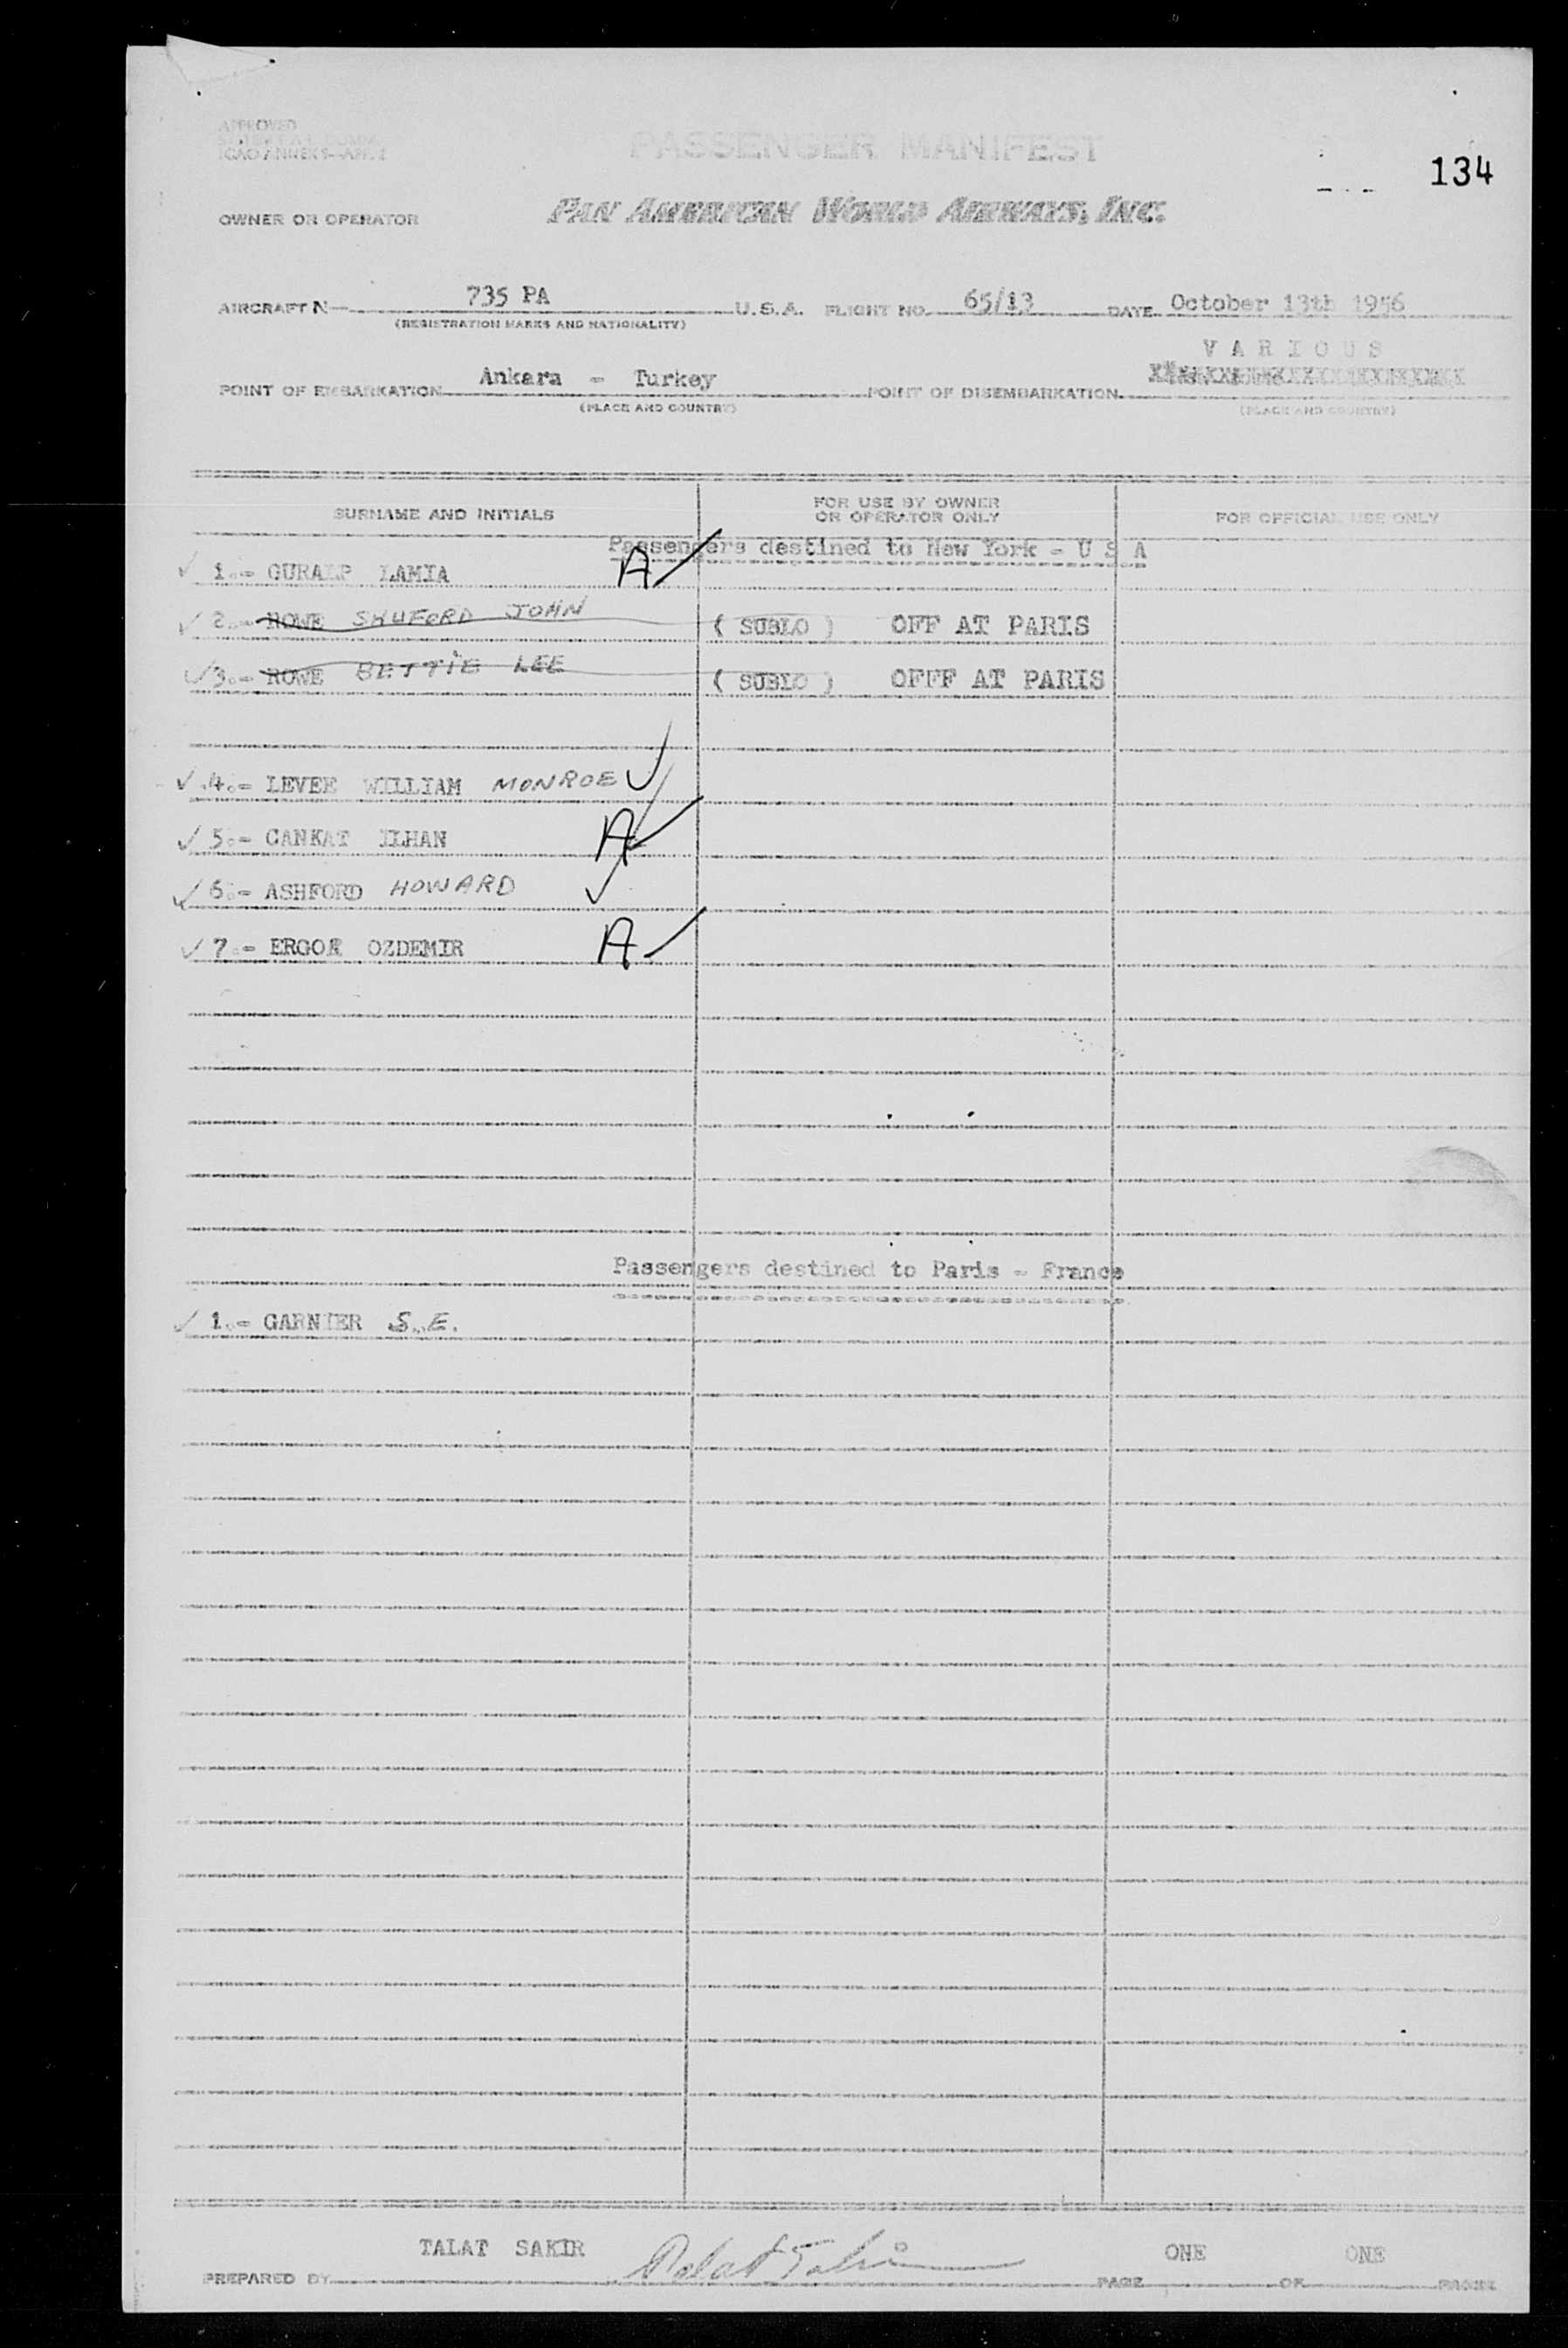 APPROVED
ICAO ANNEX 9—APP. 2
PASSENGER MANIFEST
134
OWNER OR OPERATOR PAN AMERICAN WORLD AIRWAYS, INC.
AIRCRAFT N— 735 PA U.S.A. FLIGHT NO. 65/13 DATE October 13th 1956
(REGISTRATION MARKS AND NATIONALITY)
V A R I O U S
POINT OF EMBARKATION Ankara - Turkey POINT OF DISEMBARKATION
(PLACE AND COUNTRY) (PLACE AND COUNTRY)
SURNAME AND INITIALS FOR USE BY OWNER OR OPERATOR ONLY FOR OFFICIAL USE ONLY
Passengers destined to New York - U S A
✓ 1.- GURALP LAMIA A
✓ 2.- ROWE SHUFORD JOHN ( SUBLO ) OFF AT PARIS
✓ 3.- ROWE BETTIE LEE ( SUBLO ) OFFF AT PARIS
✓ 4.- LEVEE WILLIAM MONROE ✓
✓ 5.- CANKAT ILHAN A
✓ 6.- ASHFORD HOWARD ✓
✓ 7.- ERGOR OZDEMIR A
Passengers destined to Paris - France
✓ 1.- GARNIER S.E.
TALAT SAKIR ONE ONE
PREPARED BY PAGE OF PAGES